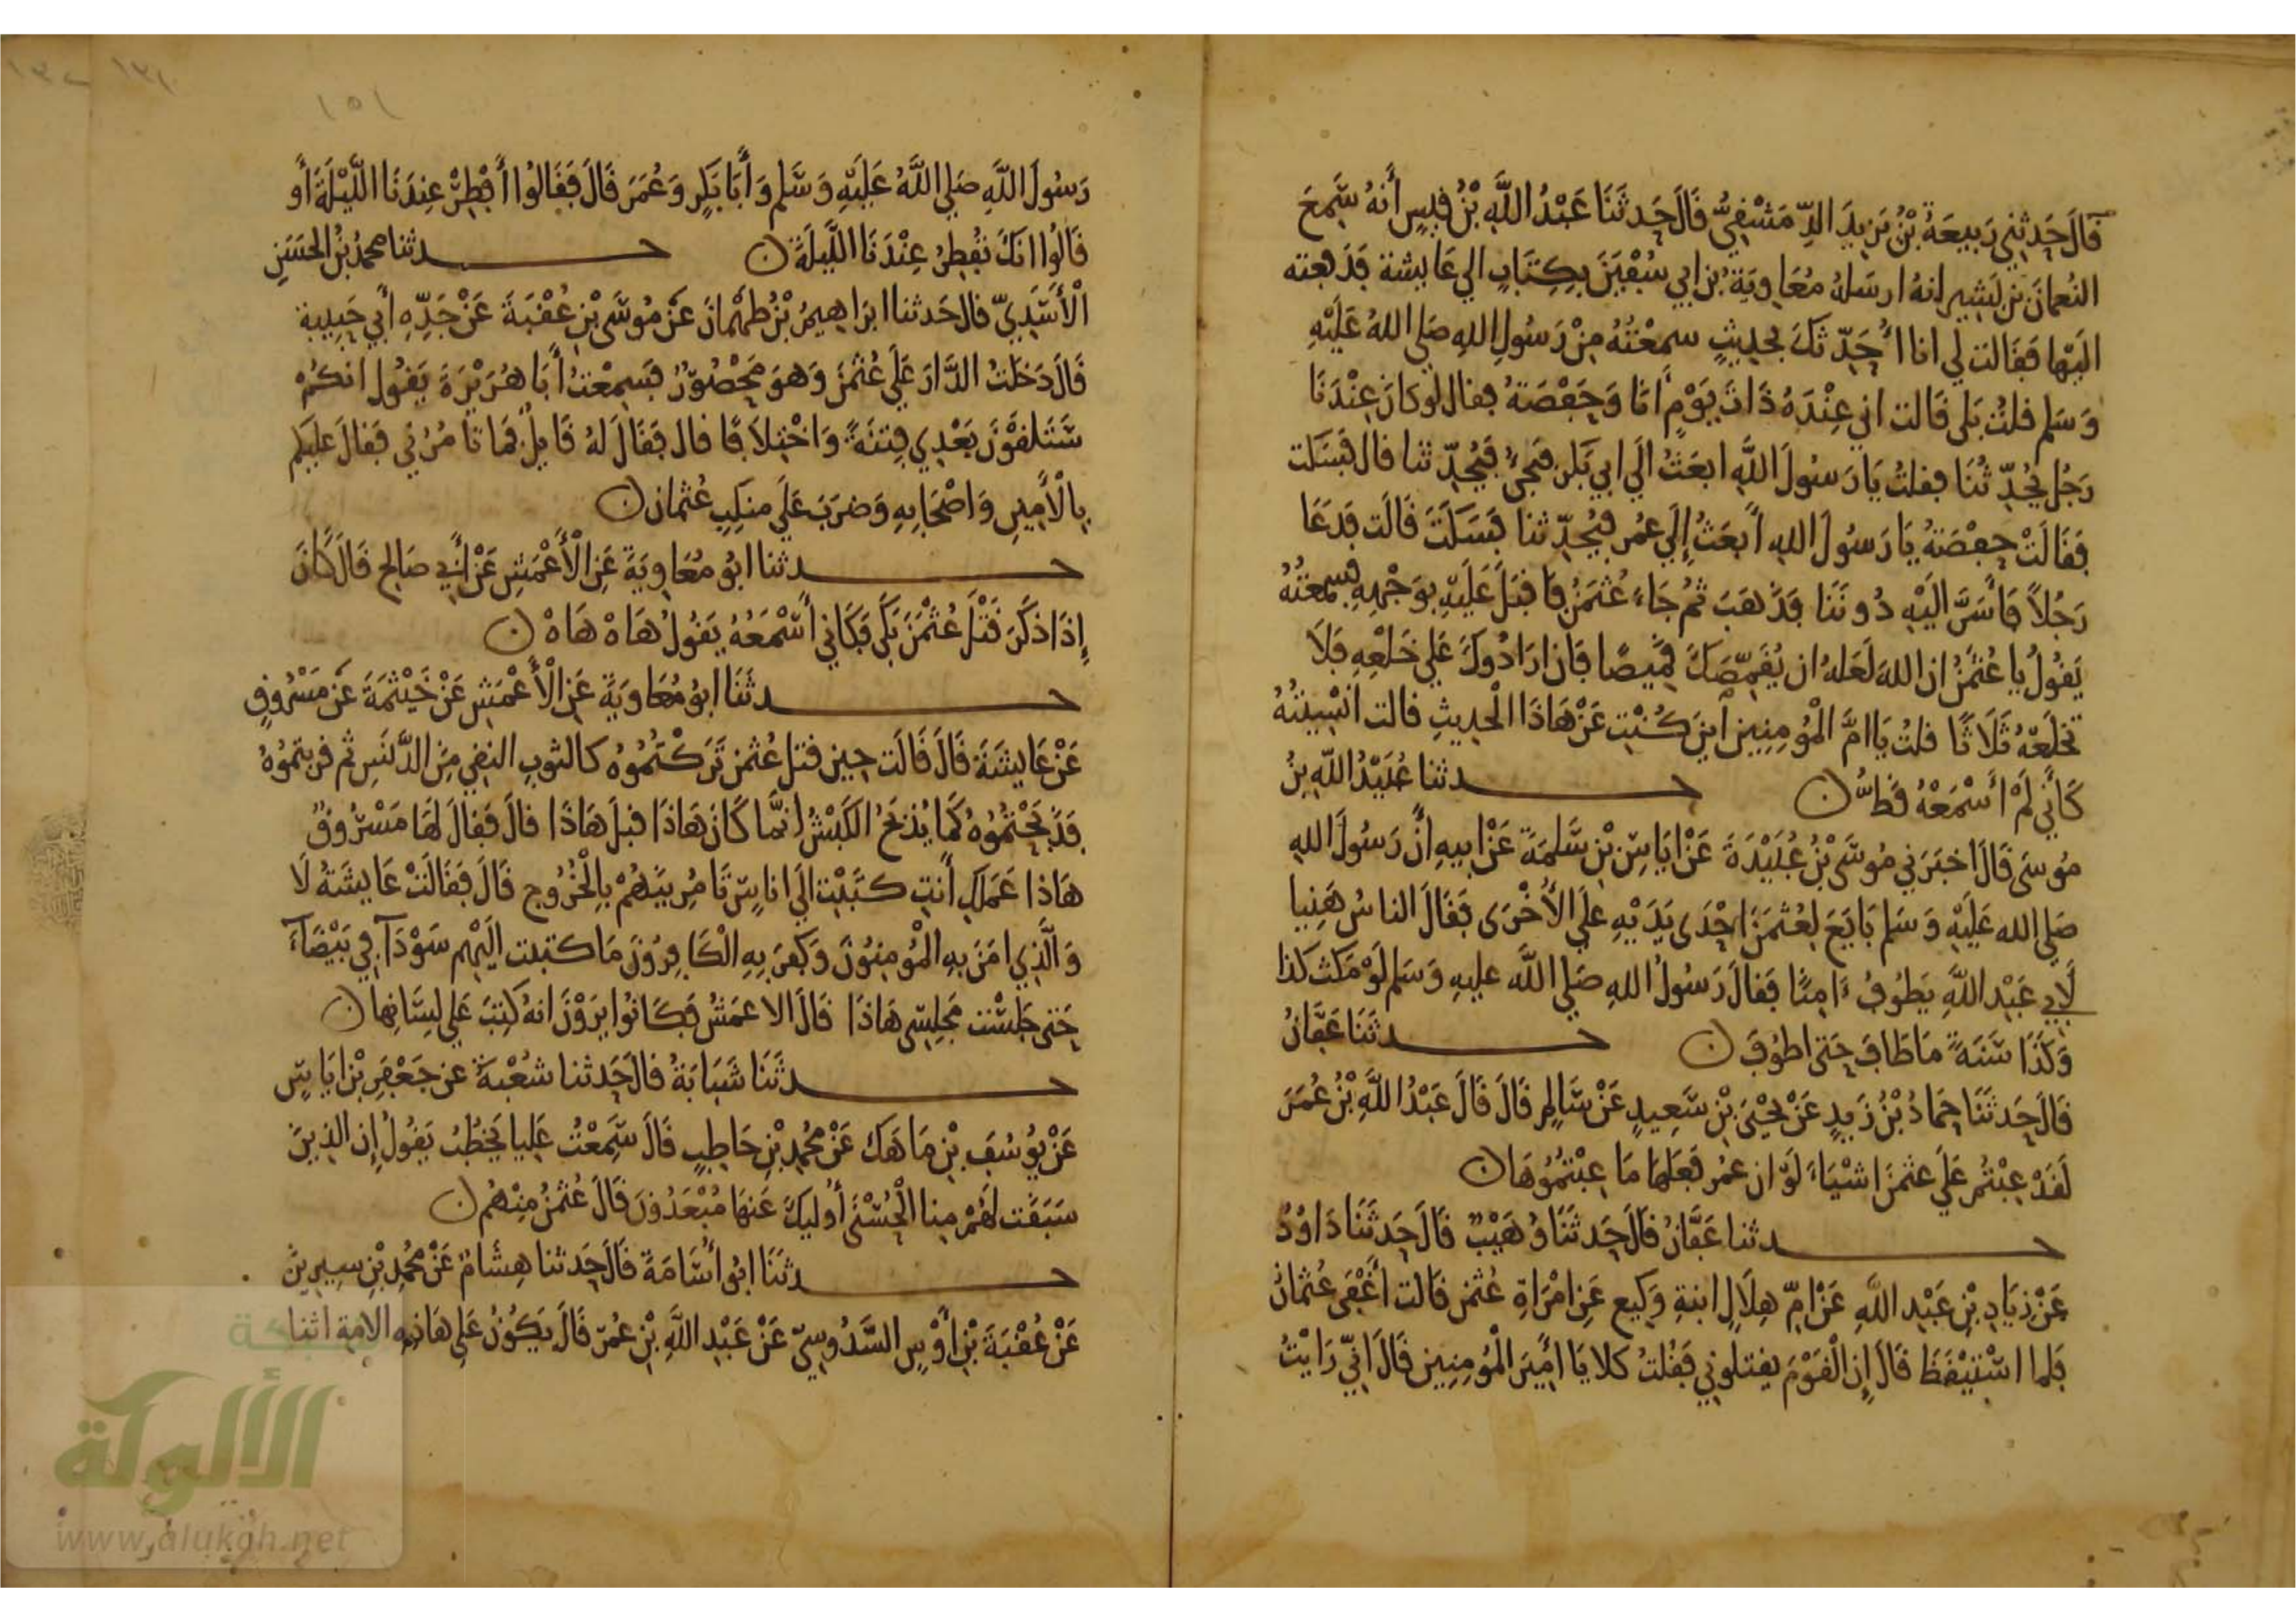 قَالَ حَدثني رَبِيعَةُ بْنُ يَزِيدَ الدِّمَشْقِيُّ قَالَ حَدثَنَا عَبْدُ اللَّهِ بْنُ قَيسٍ أَنهُ سَمِعَ
النُعمانَ بْنَ بَشِيرٍ انهُ ارسَلهُ مُعَاوِيَةُ بْنُ ابي سُفْيَنَ بِكِتَابٍ الي عَايشة فَدَفعته
اليْها فَقَالت لي انا اُحَدّثكَ بحَدِيثٍ سمعْتُهُ مِنْ رَسُولِ اللهِ صَلي اللهُ عَلَيْهِ
وَسَلم قلتُ بَلى قَالت اني عِنْدَهُ ذَاتَ يَوْمٍ انَا وَحَفْصَةُ فقال لو كانَ عِنْدَنَا
رَجُل يُحَدّثُنَا فقلتُ يَا رَسُولَ اللَّهِ ابعَثُ الَي ابي بَكر فيجيُ فَيُحَدّثنا قال فَسَكت
فَقَالَتْ حفْصَةُ يَا رَسُولَ اللهِ أَبعَثُ إِلَي عمُر فيُحَدّثنا فَسَكَتَ قَالَت فَدَعَا
رَجُلاً فَأَسَرَّ الَيْهِ دُونَنَا فَذَهَبَ ثُمَّ جَاءَ عُثمَنُ فَاقبَلَ عَلَيْهِ بوَجْهِهِ فسمعْتُهُ
يَقُولُ يا عُثمَنُ ان اللهَ لَعَلهُ ان يُقَمِّصَكَ قَمِيصًا فَان ارَادُوكَ عَلي خَلْعِهِ فَلَا
تخلَعْهُ ثَلَاثًا قلتُ يَا امَّ الْمُومِنِينَ اَينَ كُنْتِ عَنْ هَاذَا الْحَدِيثِ قالت انْسِيتُهُ
كَأَنِّي لَمْ أَسْمَعْهُ قَطُّ ن حــدثنا عُبَيْدُ اللَّهِ بنُ
مُوسَى قَالَ اخبَرَني مُوسَى بْنُ عُبَيْدَةَ عَنْ ايَاسِ بْنِ سَلمَةَ عَنْ ابيهِ انَّ رَسُولَ اللهِ
صَلى الله عَلَيْهِ وَسَلم بَايَعَ لِعُثمَنَ اِحْدَى يَدَيْهِ عَلي الأُخْرَى فَقَالَ الناسُ هَنِيا
لأبي عَبْدِ اللَّهِ يَطُوفُ ءَامِنًا فَقالَ رَسُولُ اللهِ صَلي اللَّه عليهِ وَسَلم لَوْ مَكثَ كذَا
وَكَذَا سَنَةً مَا طَافَ حَتى اطُوفَ ن حــدثَنَا عَفَّانُ
قَالَ حَدثَنَا حَمادُ بْنُ زَيدٍ عَنْ يَحْيَى بْنِ سَعِيدٍ عَنْ سَالِمٍ قَالَ قَالَ عَبْدُ اللَّهِ بْنُ عُمَرَ
لَقَدْ عِبْتُم عَلَي عثمَنَ اشْيَاءَ لَوْ ان عمُر فَعَلهَا مَا عِبْتُمُوهَا ن
حــدثنا عَفَّانُ قَالَ حَدثَنَا وُهَيْبٌ قَالَ حَدثَنَا دَاوُدُ
عَنْ زِيَادِ بْنِ عَبْدِ اللَّهِ عَنْ امِّ هِلَالٍ ابنةِ وَكِيعٍ عَنِ امْرَاةِ عُثمَن قَالت أَغْفَى عُثمانُ
فَلما اسْتَيْقَظَ قَالَ إِن الْقَوْمَ يقتلوني فَقُلتُ كلا يَا امِيرَ الْمُومِنِين قَالَ انِّي رَايْتُ
١٥١
رَسُولَ اللَّهِ صَلي اللَّهُ عَلَيْهِ وَسَّلم وَأَبَا بَكرٍ وَعُمَرَ قَالَ فَقَالُوا أَفْطِرْ عِندَنَا اللَّيْلَةَ أَو
قَالُوا انكَ تُفْطِرُ عِنْدَنَا اللَّيلَةَ ن حــدثنا محمدُ بْنُ الحَسَنِ
الْأَسَدِيّ قال حَدثنا ابرَاهِيمُ بْنُ طَهْمَانَ عَنْ مُوسَى بْنِ عُقْبَةَ عَنْ جَدِّهِ أَبي حَبِيبة
قَالَ دَخَلتُ الدَّارَ عَلَي عُثمَنَ وَهوَ مَحْصُورٌ فَسَمِعْتُ أَبَا هُرَيْرَةَ يَقُول انكُمْ
سَتَلقَوْنَ بَعْدِي فِتنَةً وَاخْتِلاَفًا قال فَقَالَ لهُ قَايلٌ فمَا تَامُرُني فَقالَ عليكم
بِالْأَمِيرِ وَاصْحَابِهِ وَضرَبَ عَلَي منكِبِ عُثمان ن
حــدثنا ابُو مُعَاوِيَةَ عَنِ الْأَعْمَشِ عَنْ أَبِي صَالح قَالَ كَانَ
إِذَا ذكَرَ قَتْلَ عُثْمَنَ بَكَى فَكَاني أَسْمَعُهُ يَقُولُ هَاهْ هَاهْ ن
حــدثَنَا ابُو مُعَاوِيَةَ عَنِ الْأَعْمَشِ عَنْ خَيْثمَةَ عَنْ مَسْرُوقٍ
عَنْ عَايشَةَ قَالَ قَالَت حِين قتلَ عُثمن تَرَكْتُمُوُهُ كالثوبِ النقي مِنَ الدَّنَسِ ثم قربتمُوُهُ
فَذَبَحْتُمُوُهُ كَمَا يُذبَحُ الكَبْشُ انَّما كَانَ هَاذَا قبلَ هَاذَا قالَ فَقالَ لَهَا مَسْرُوقٌ
هَاذا عَمَلكِ أَنتِ كتَبْتِ الَي انَاسٍ تَامُرِينَهُمْ بِالْخُرُوجِ قَالَ فَقَالَتْ عَايشَةُ لَا
وَالَّذِي امَنَ بِهِ الْمُومِنُونَ وَكفَرَ بِهِ الْكَافِرُونَ مَا كتبت الَيْهِم سَوْدَآ في بَيْضَآءَ
حَتى جَلسْت مَجلِسِي هَاذَا قَالَ الاعمَشُ فَكَانُوا يَرَوْنَ انهُ كتِبَ عَلي لِسَانِها ن
حــدثَنَا شَبَابَةُ قالَ حَدثنا شُعْبَةُ عن جَعْفَرِ بْنِ ايَاسٍ
عَنْ يُوسُفَ بْنِ مَاهَكَ عَنْ مُحَمدِ بْنِ حَاطِبٍ قَالَ سَمِعْتُ عَلِيا يَخطُبُ يَقُولُ إِن الذِينَ
سَبَقَت لَهُمْ مِنا الْحُسْنَى أُولَيكَ عَنهَا مُبْعَدُونَ قَالَ عُثمَنُ مِنْهُم ن
حــدثَنَا ابُو أُسَامَةَ قَالَ حَدثنا هِشَامٌ عَنْ مُحَمدِ بْنِ سِيرِينَ
عَنْ عُقْبَةَ بْنِ أَوْسٍ السَّدُوسِيّ عَنْ عَبْدِ اللَّهِ بْنِ عُمَر قَالَ يَكُونُ عَلي هَاذِهِ الامةِ اثنا
شبكة
الألوكة
www.alukah.net